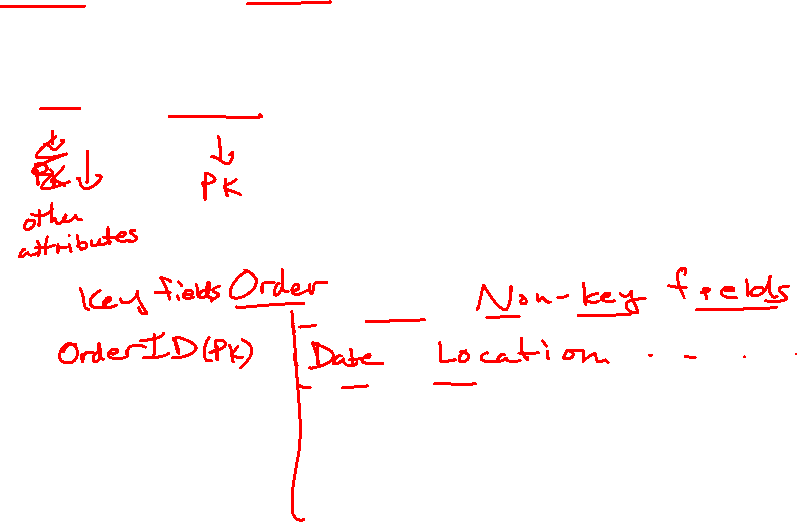 PK
other
attributes
Key fields Order Non-key fields
OrderID(PK) Date Location . . . .